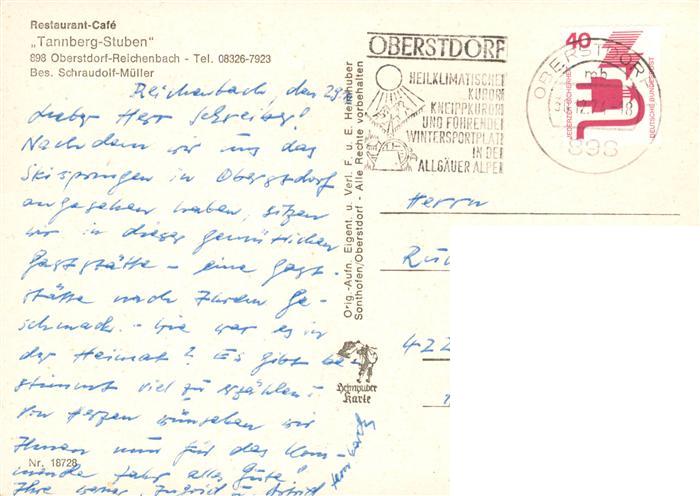 Restaurant-Café
„Tannberg-Stuben"
898 Oberstdorf-Reichenbach - Tel. 08326-7923
Bes. Schraudolf-Müller
Reichenbach, den 29.
Lieber Herr Schreiber!
Nachdem wir uns das
Skispringen in Oberstdorf
angesehen haben, sitzen
wir in dieser gemütlichen
Gaststätte – eine Gast-
stätte nach Ihrem Ge-
schmack. – Wie war es in
der Heimat? Es gibt be-
stimmt viel zu erzählen!
Von Herzen wünschen wir
Ihnen nun für das kom-
mende Jahr alles Gute!
Ihre Ingrid u. Astrid
Nr. 18728
Orig.-Aufn. Eigent. u. Verl. F. u. E. Heimhuber
Sonthofen/Oberstdorf - Alle Rechte vorbehalten
Heimhuber
Karte
OBERSTDORF
HEILKLIMATISCHER
KURORT
KNEIPPKURORT
UND FÜHRENDER
WINTERSPORTPLATZ
IN DEN
ALLGÄUER ALPEN
OBERSTDORF
mb
898
40
JEDERZEIT SICHERHEIT
DEUTSCHE BUNDESPOST
Herrn
422